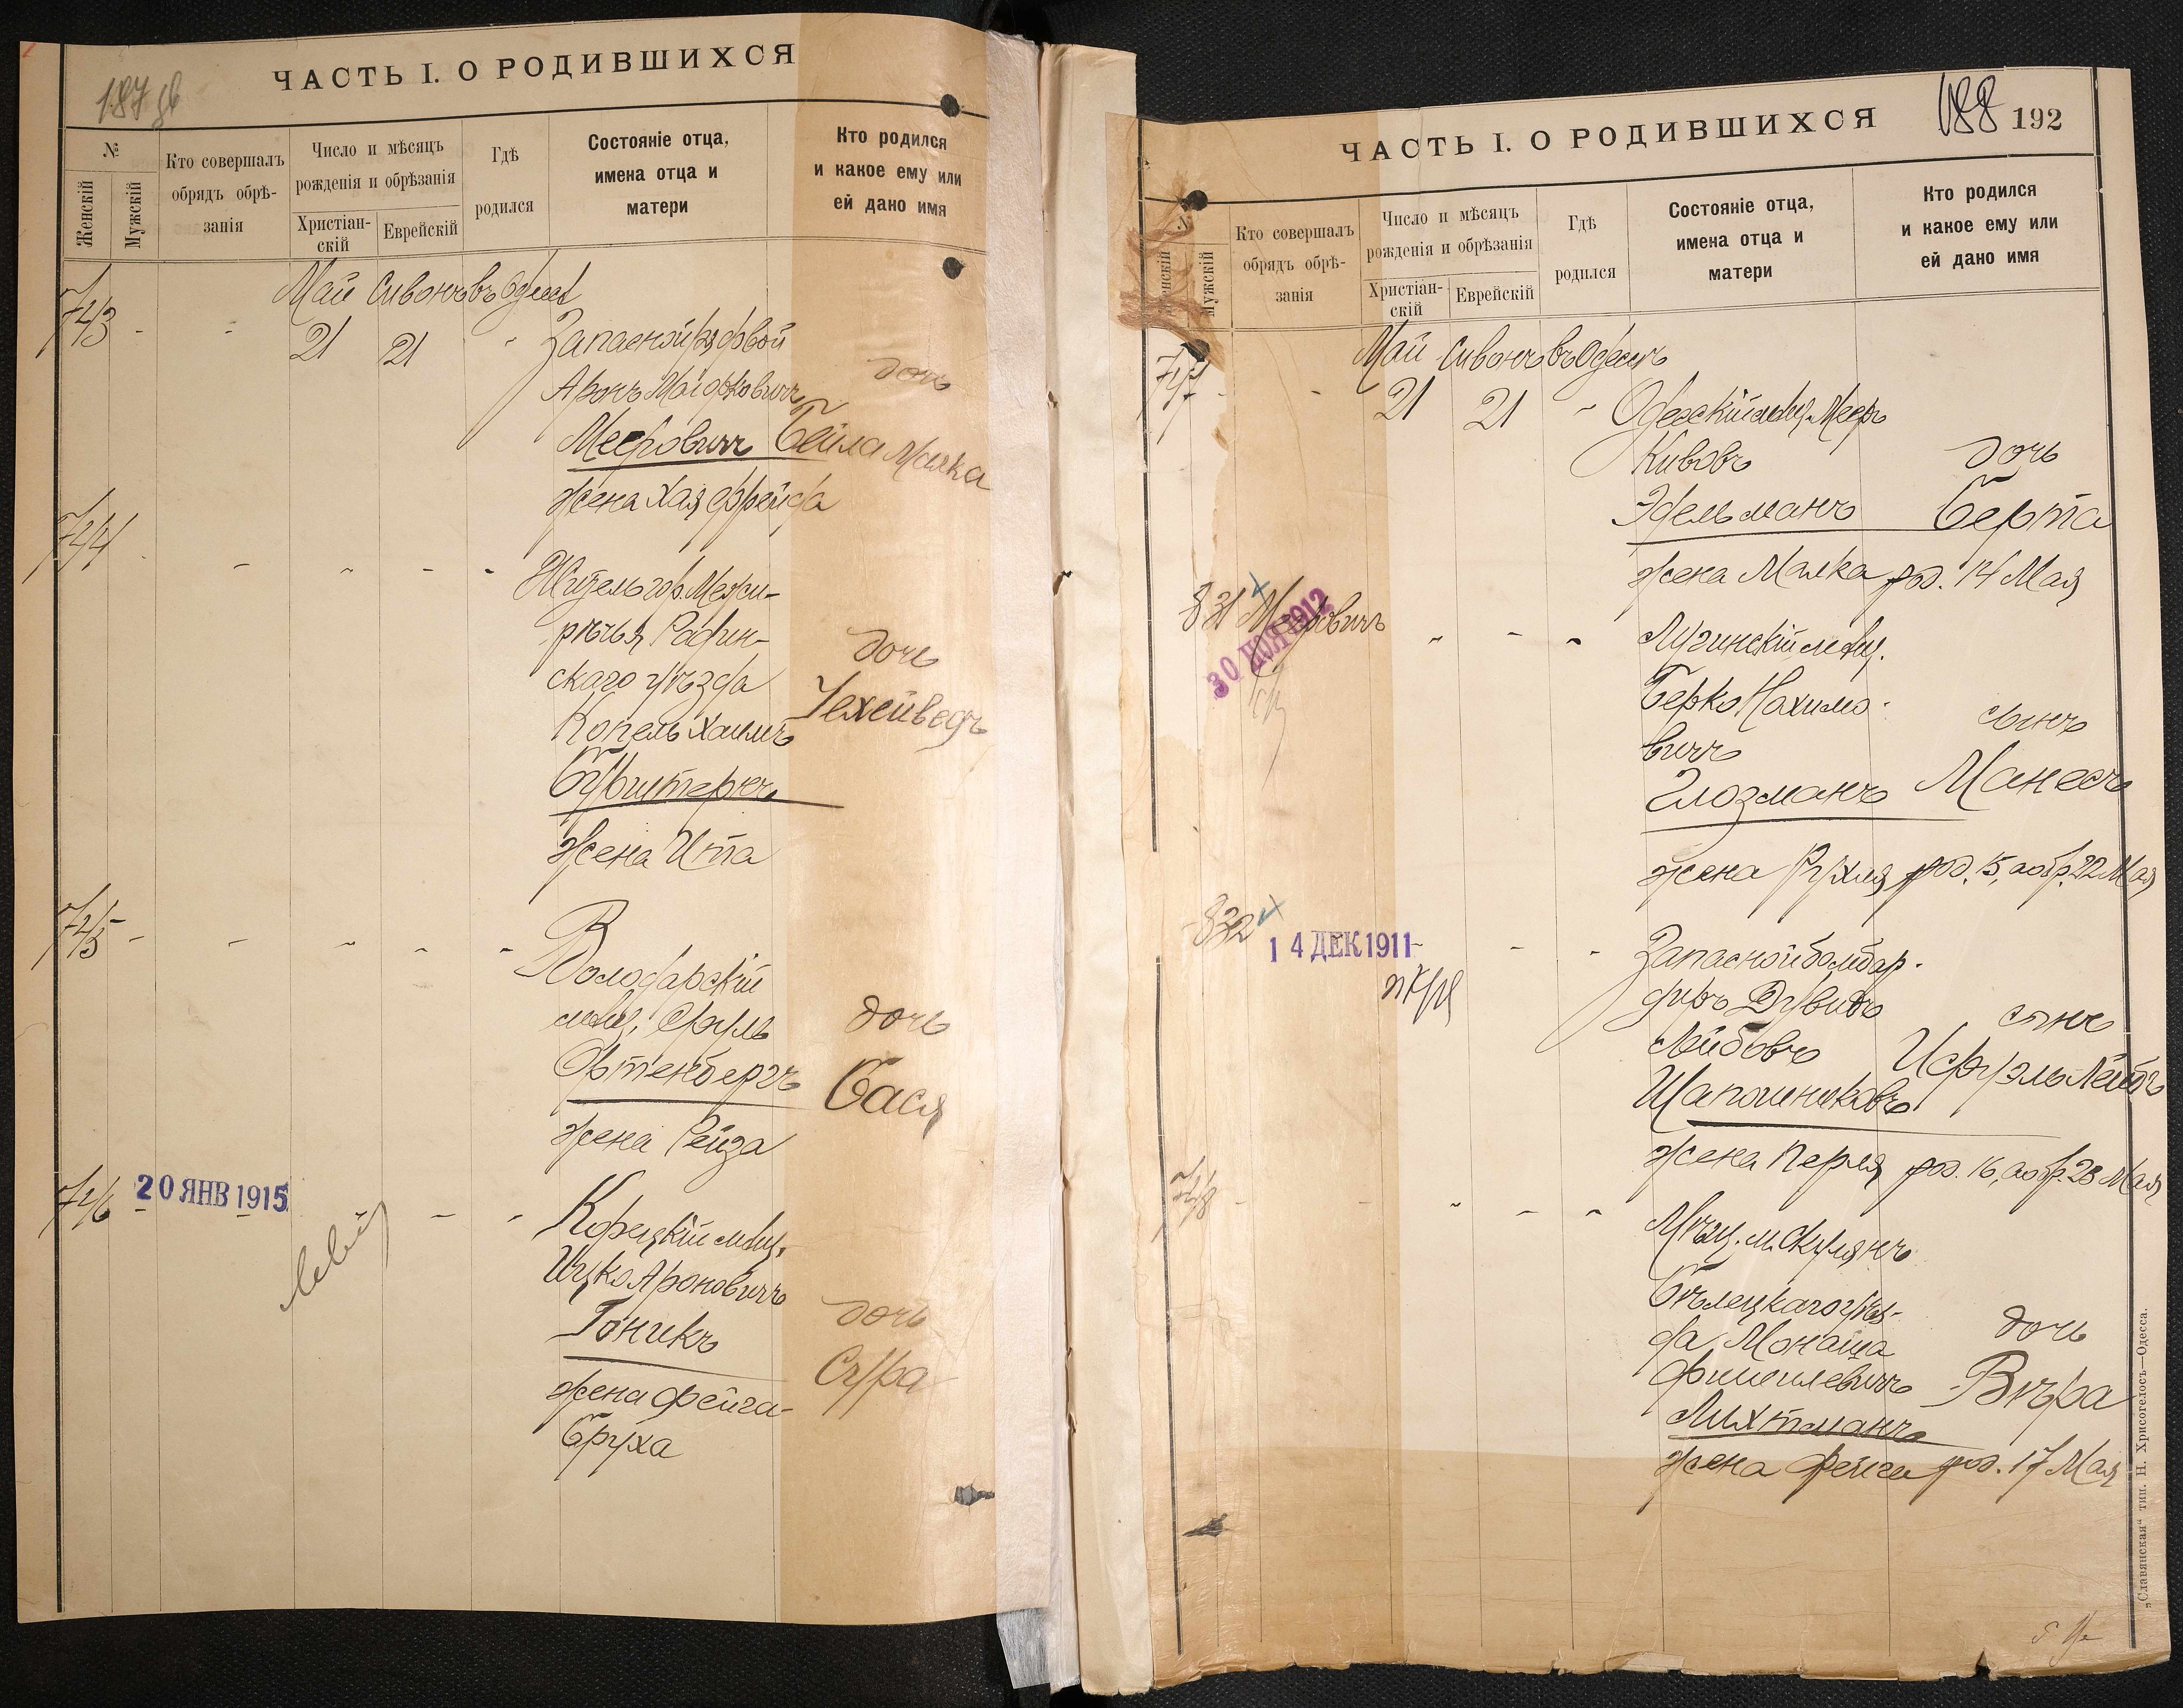 187 об
ЧАСТЬ I. О РОДИВШИХСЯ
№
Женскій
Мужскій
Кто совершалъ
обрядъ обрѣ-
занія
Число и мѣсяцъ
рожденія и обрѣзанія
Христіан-
скій
Еврейскій
Гдѣ
родился
Состояніе отца,
имена отца и
матери
Кто родился
и какое ему или
ей дано имя
Май Сивонъ въ Одессѣ
743 - - 21 21 - Запасной рядовой
Аронъ дочь
Мееровичъ Бейла Малка
жена Хая Фрейда
744 - - - - Житель гор. Межи-
рѣчья Радин-
скаго уѣзда дочь
Копель Хаимъ Іехейведъ
жена Ита
745 - - - - - Володарскій
мѣщ. Сруль дочь
Ортенбергъ Бася
жена Рейза
746 20 ЯНВ 1915 - - Корецкій мѣщ.
Ицко Ароновичъ дочь
Гоникъ Сура
жена Фейга-
Бруха
188 192
ЧАСТЬ I. О РОДИВШИХСЯ
№
Женскій
Мужскій
Кто совершалъ
обрядъ обрѣ-
занія
Число и мѣсяцъ
рожденія и обрѣзанія
Христіан-
скій
Еврейскій
Гдѣ
родился
Состояніе отца,
имена отца и
матери
Кто родился
и какое ему или
ей дано имя
Май Сивонъ въ Одессѣ
747 - - 21 21 - Одесскій мѣщ. Мееръ
Кивовъ дочь
Эдельманъ Берта
жена Малка род. 14 Мая
831 Мееровичъ - - - Лугинскій мѣщ.
30 НОЯ 1912
Берко Нахимо-
вичъ сынъ
Глозманъ Манесъ
жена Рухля род. 15, а обр. 22 Мая
832 14 ДЕК 1911 - - Запасной бомбар-
диръ Дувидъ сынъ
Лейбовъ Исруэль Лейбъ
Шапошниковъ
жена Перля род. 16, а обр. 23 Мая
748 - - - - - Мѣщ. м. Скулянъ
Бѣлецкаго уѣз-
да Монаша дочь
Фишилевичъ Вѣра
Лихтманъ
жена Фейга род. 17 Мая
„Славянская“ тип. Н. Хрисогелосъ—Одесса.